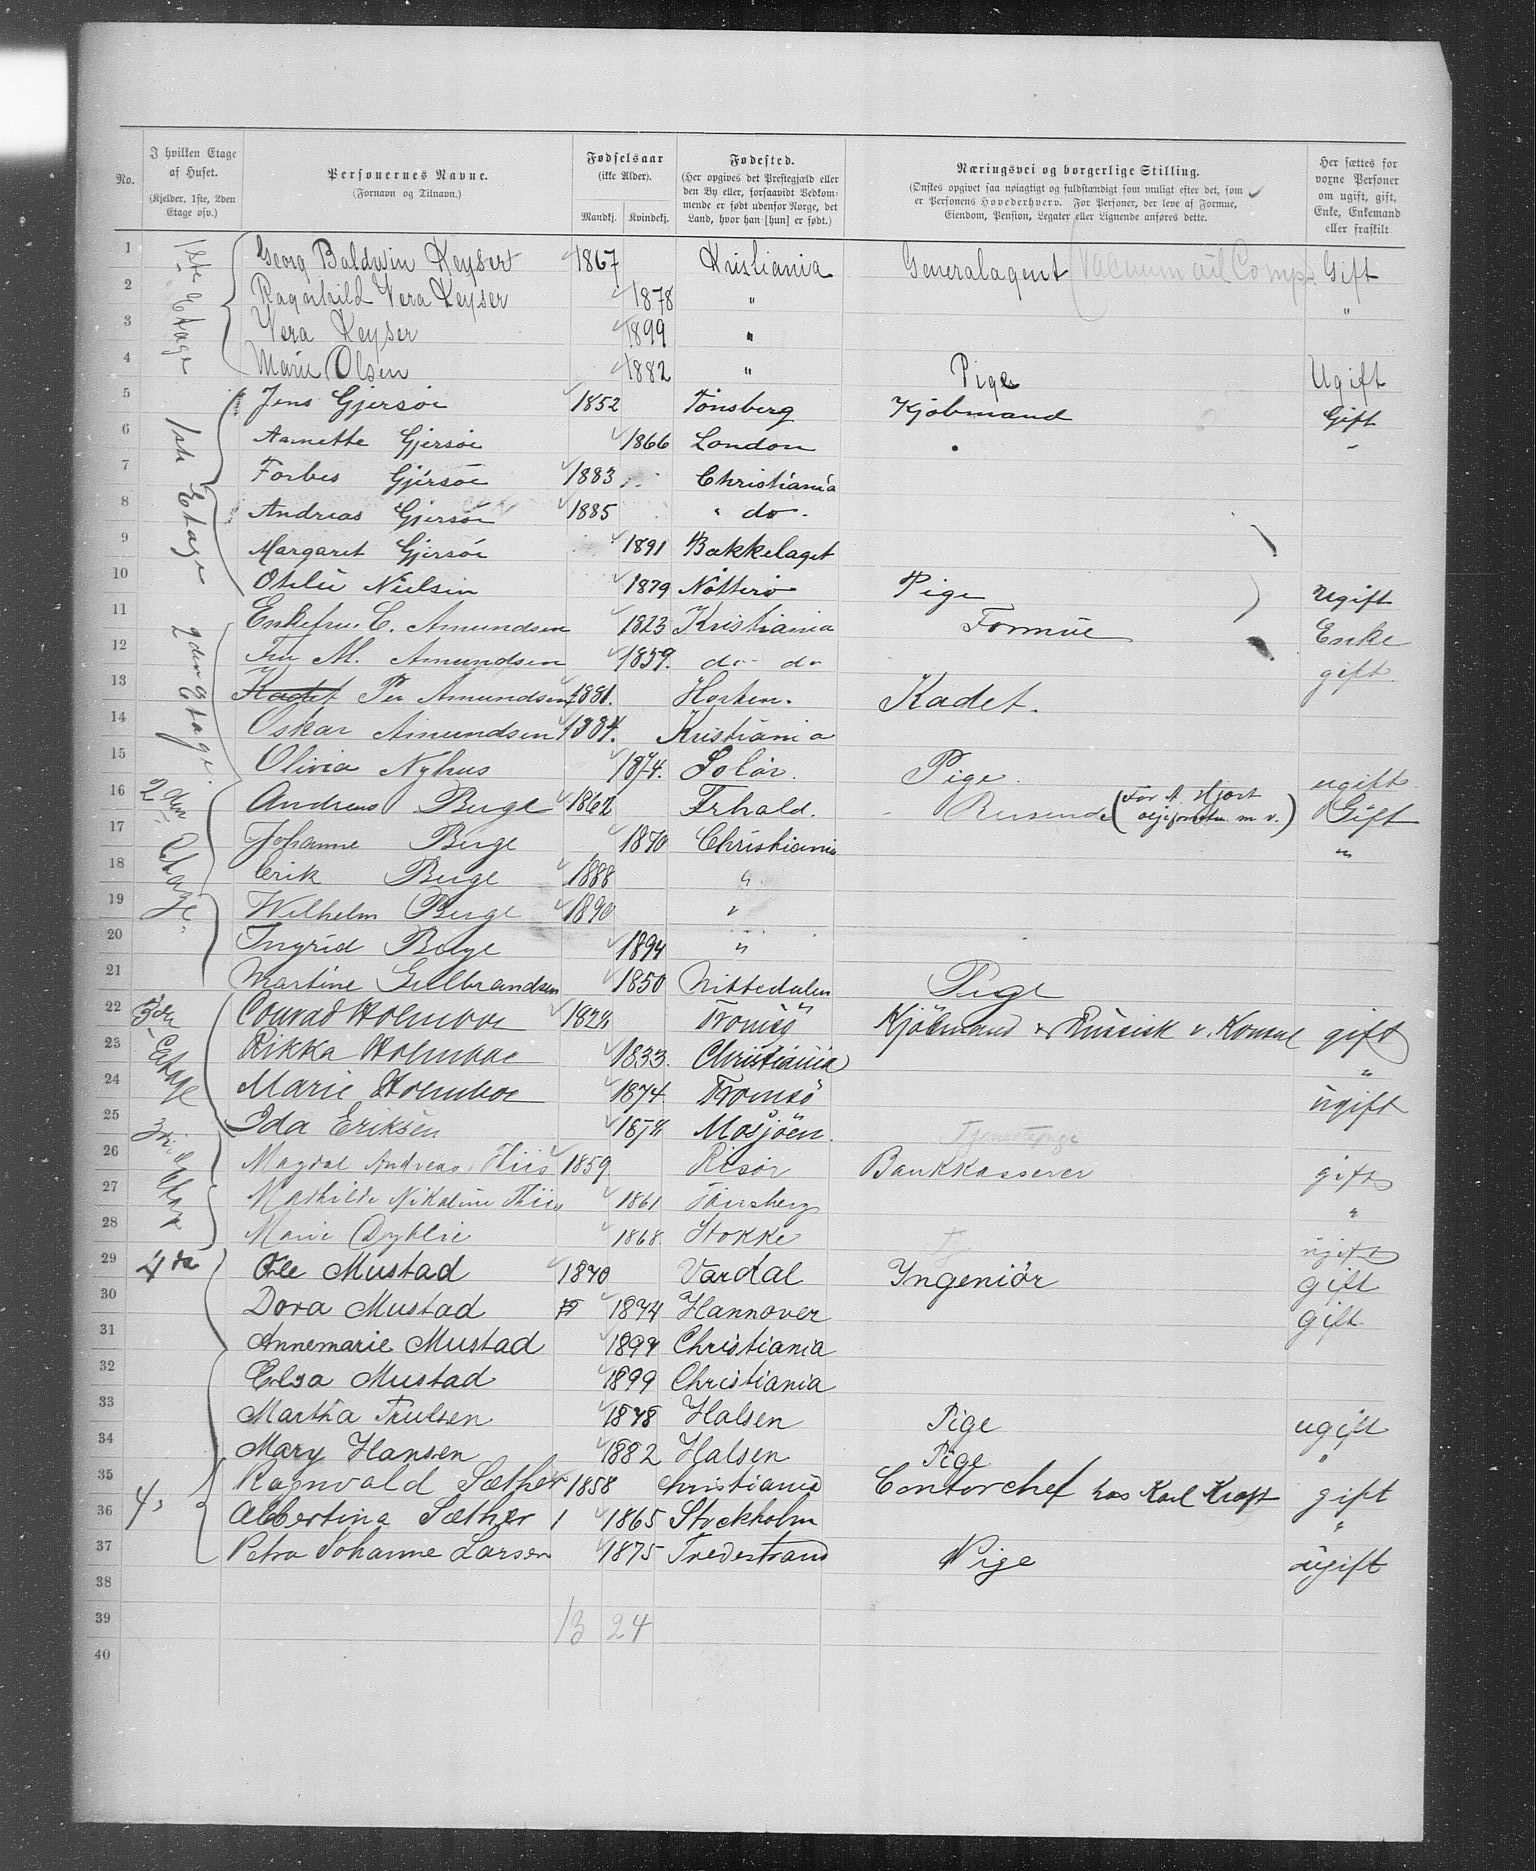 No. | I hvilken Etage af Huset. (Kjelder, 1ste, 2den Etage osv.) | Personernes Navne. (Fornavn og Tilnavn.) | Fødselsaar (ikke Alder). Mandkj. Kvindekj. | Fødested. (Her opgives det Prestegjæld eller den By eller, forsaavidt Vedkommende er født udenfor Norge, det Land, hvor han [hun] er født.) | Næringsvei og borgerlige Stilling. (Ønskes opgivet saa nøiagtigt og fuldstændigt som muligt efter det, som er Personens Hovederhverv. For Personer, der leve af Formue, Eiendom, Pension, Legater eller Lignende anføres dette. | Her sættes for voxne Personer om ugift, gift, Enke, Enkemand eller fraskilt
1 1ste Etage Georg Baldwin Keyser 1867 Kristiania Generalagent (Vacuum oil Comp. Gift
2 Ragnhild Vera Keyser 1878 " "
3 Vera Keyser 1899 "
4 Marie Olsen 1882 " Pige Ugift
5 1ste Etage Jens Gjersøe 1852 Tönsberg Kjöbmand Gift
6 Annette Gjersøe 1866 London "
7 Forbes Gjersøe 1883 Christiania
8 Andreas Gjersøe 1885 " do.
9 Margaret Gjersøe 1891 Bækkelaget
10 Otelie Nielsen 1879 Nötterö Pige ugift
11 2den Etage Enkefrue C. Amundsen 1823 Kristiania Formue Enke
12 Fru M. Amundsen 1859. do do gift
13 Kadet Per Amundsen 1881. Horten. Kadet.
14 Oskar Amundsen 1884. Kristiania
15 Olivia Nyhus 1874. Solör. Pige. ugift
16 2den Etage Andreas Buge 1862 Frhald. Reisende (For A. Hjort m v.) Gift
17 Johanne Buge 1870 Christiania "
18 Erik Buge 1888 "
19 Wilhelm Buge 1890 "
20 Ingrid Buge 1894 "
21 Martine Gulbrandsen 1850 Nittedalen Pige
22 3die Etage Conrad Holmboe 1828 Tromsö Kjöbmand & Russisk v. Konsul gift
23 Rikka Holmboe 1833. Christiania "
24 Marie Holmboe 1874. Tromsö ugift
25 Ida Eriksen 1878 Mosjöen. Tjenestepige
26 3die Etage Magdal Andreas Thiis 1859 Risör Bankkasserer gift
27 Mathilde Nikoline Thiis 1861 Tönsberg "
28 Marie 1868. Stokke ugift
29 4de Ole Mustad 1870 Vardal Ingeniör gift
30 Dora Mustad 1874 Hannover gift.
31 Annemarie Mustad 1897 Christiania
32 Elsa Mustad 1899 Christiania
33 Martha Trulsen 1878 Halsen Pige ugift
34 Mary Hansen 1882 Halsen Pige "
35 4, Ragnvald Sæther 1858 Christiania Contorchef hos Karl Kraft gift
36 Albertina Sæther 1865 Stockholm "
37 Petra Johanne Larsen 1875 Tvedestrand Pige ugift
38
39 13 24
40